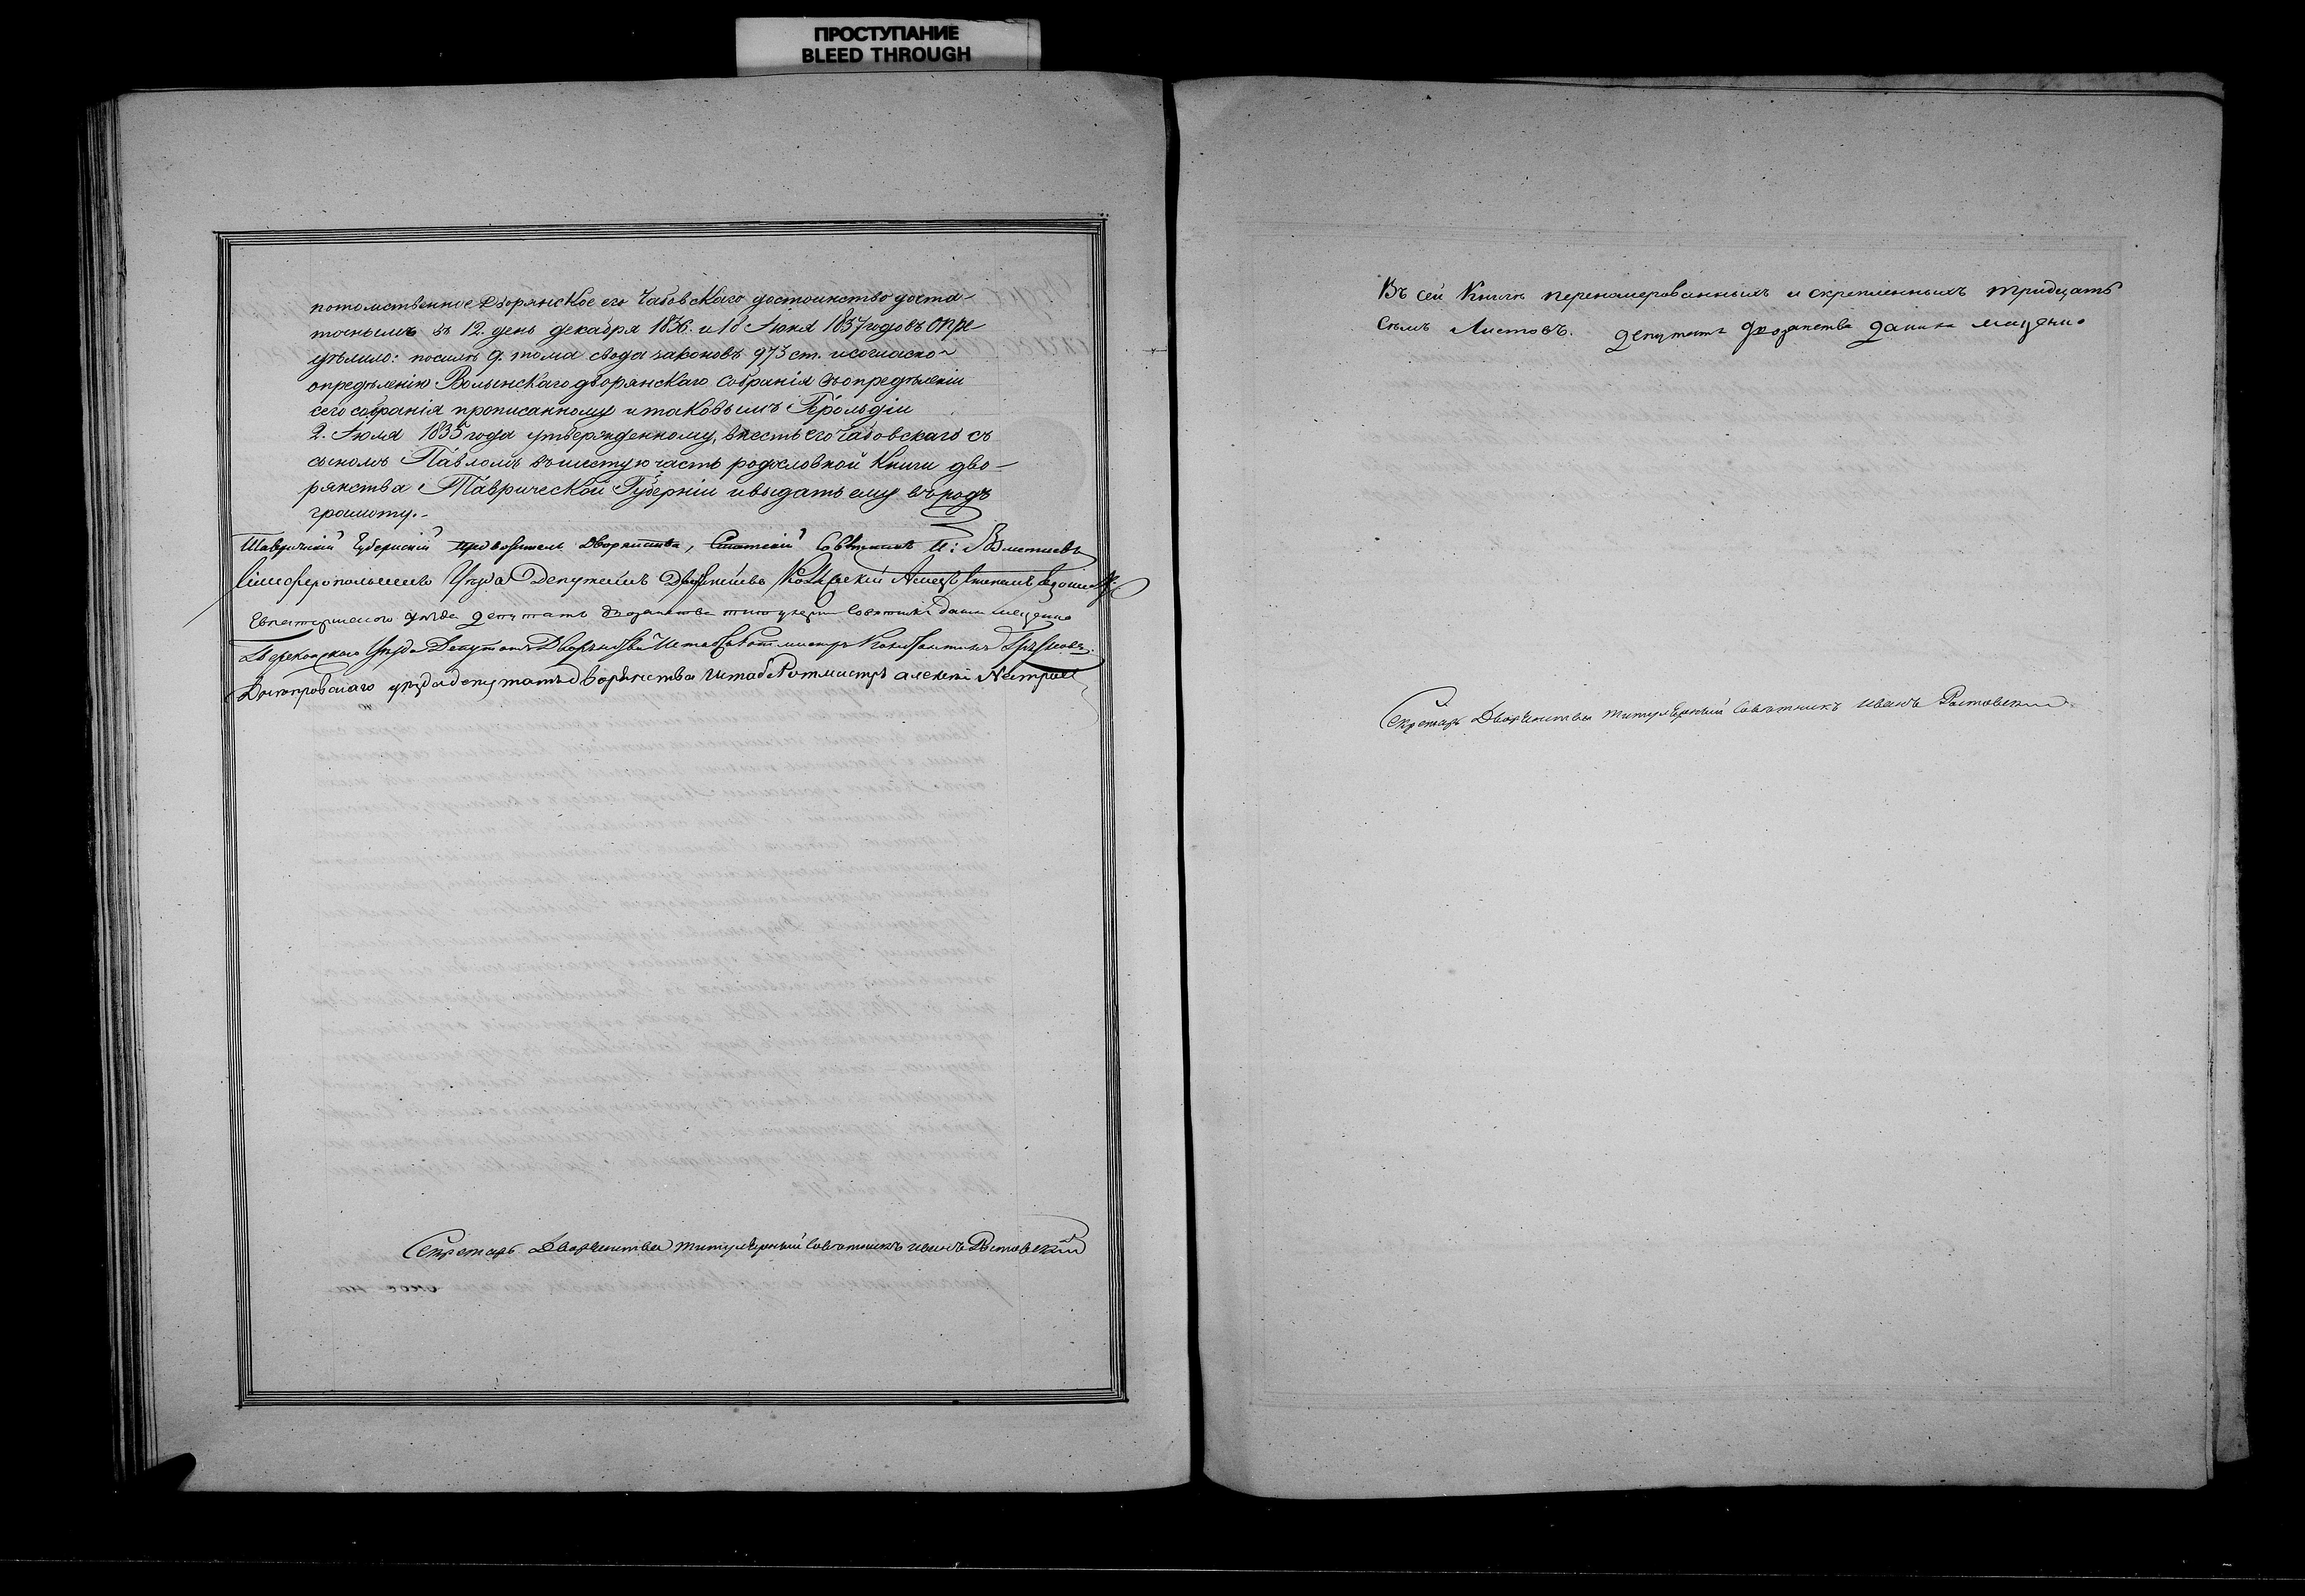 ПРОСТУПАНИЕ
BLEED THROUGH
потомственное дворянское его Чабовскаго достоинство доста-
точнымъ въ 12. день декабря 1836. и 18 Июня 1837 годовъ опре-
дѣлило: по силѣ 9. тома свода законовъ 973 ст. и согласно
опредѣленію Волынскаго дворянскаго собранія въ опредѣленіи
сего собранія прописанному и таковымъ Герольдіи
2. Июля 1835 года утвержденному, внесть его Чабовскаго съ
сыномъ Павломъ въ шестую часть родословной книги дво-
рянства Таврической Губерніи и выдать ему въ родъ
грамоту.-
Таврическій Губернскій предводитель дворянства, Статскій Совѣтникъ
Симферопольскаго Уѣзда Депутатъ Дворянства
Евпаторійскаго уѣзда депутатъ дворянства титулярный совѣтникъ
Перекопскаго Уѣзда Депутатъ Дворянства Штабсъ Ротмистръ Константинъ
Днепровскаго уѣзда депутатъ дворянства Штабъ Ротмистръ Алексѣй
Секретарь Дворянства титулярный совѣтникъ Иванъ Ростовский
Въ сей книгѣ перенумерованныхъ и скрепленныхъ тридцать
семь Листовъ. депутатъ дворянства
Секретарь Дворянства титулярный совѣтникъ Иванъ Ростовский